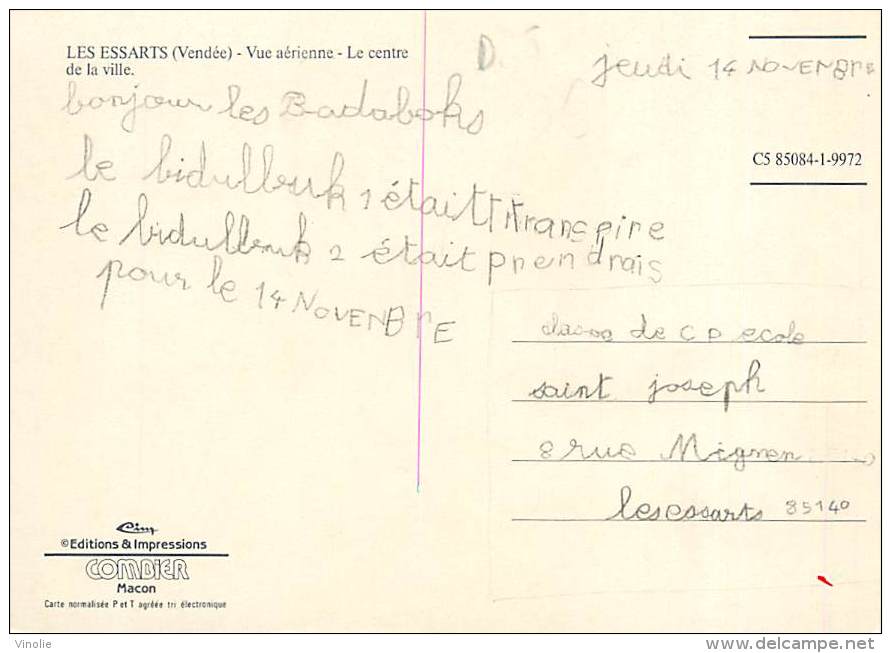 LES ESSARTS (Vendée) - Vue aérienne - Le centre
de la ville.
D.
jeudi 14 NOVEMBrE
bonjour les Badaboks
le bidulbuk 1 était transpire
le bidulbuk 2 était prendrais
pour le 14 NOVENBrE
C5 85084-1-9972
classe de CP ecole
saint joseph
8 rue Mignen
les essarts 85140
Cim
©Editions & Impressions
COMBIER
Macon
Carte normalisée P et T agréée tri électronique
Vinolie
www.delcampe.net